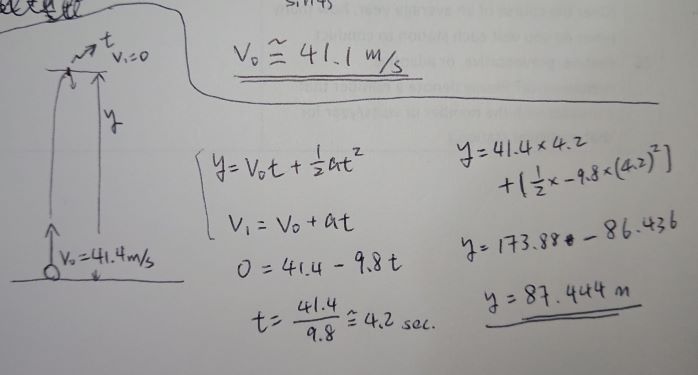 t
V₁=0
V₀ ≅ 41.1 m/s
y
V₀=41.4m/s
y=V₀t+½at²
V₁=V₀+at
0=41.4-9.8t
t=41.4/9.8≅4.2 sec.
y=41.4×4.2
+[½×-9.8×(4.2)²]
y=173.88-86.436
y=87.444 m